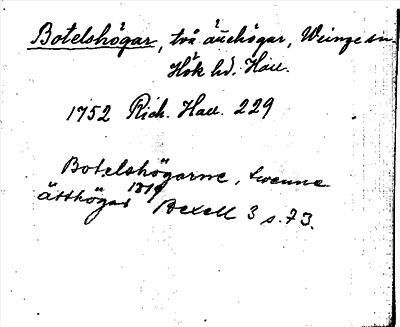 Botelshögar, två ättehögar, Weinge sn
Höks hd. Hall.
1752 Rich. Hall. 229
Botelshögarne, tvenne
ätthögar 1819 Bexell 3 s. 73.